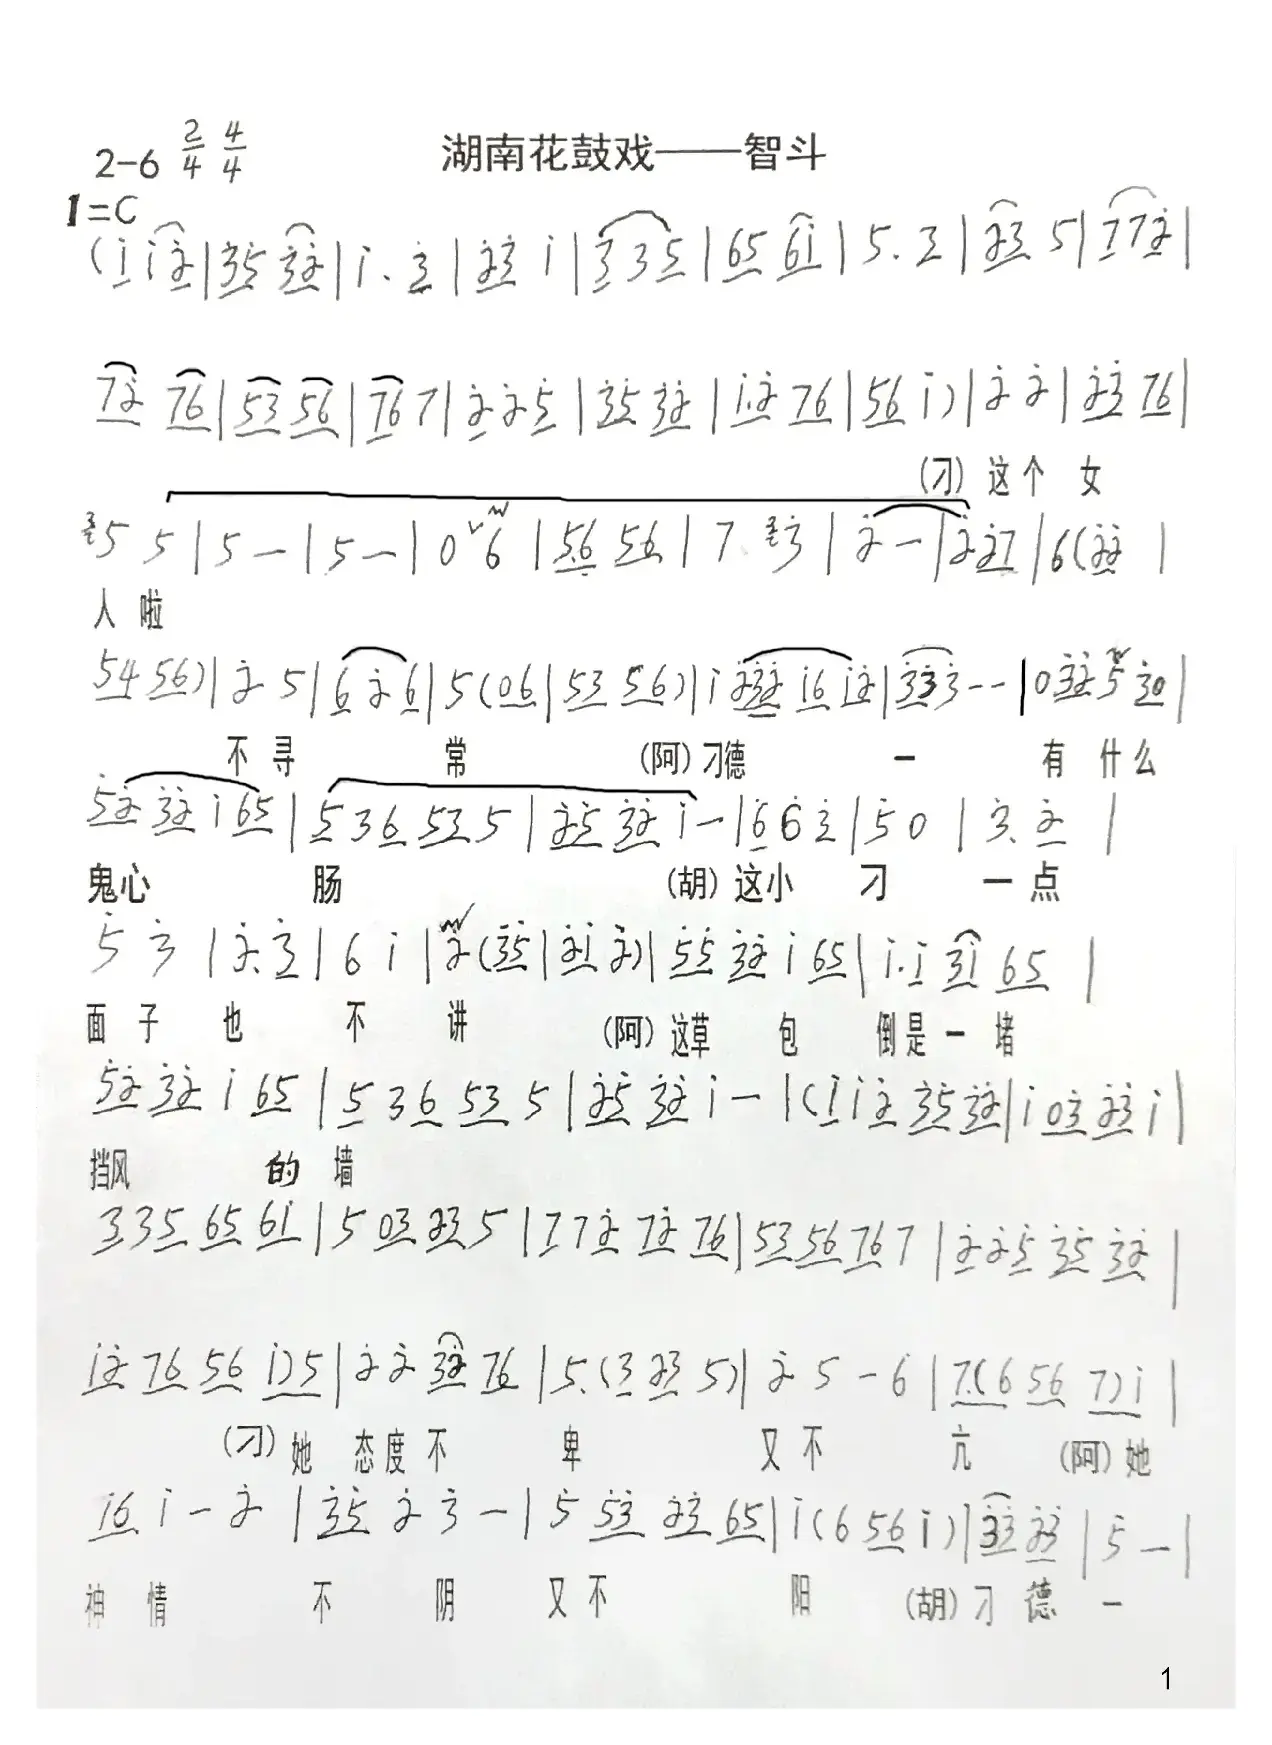 湖南花鼓戏——智斗
2-6 2/4 4/4
1=C
(i i2|35 32|i. 3|23 i|3 35|65 6i|5. 3|23 5|7 72|
72 76|53 56|76 7|2 25|35 32|i.2 76|56 i)|2 2|23 76|
(刁) 这个 女
5 5|5 —|5 —|0 6|5.6 56|7. 3|2 —|2 27|6(22|
人 啦
54 56)|2 5|6 2 6|5(06|53 56)|i 232 i6 i2|33 3--|0 32 5 30|
不 寻 常 (阿) 刁德 一 有 什 么
52 32 i 65|5 36 53 5|25 32 i —|6 6 3|5 0|3. 2|
鬼心 肠 (胡) 这小 刁 一 点
5 3|2. 3|6 i|2(35|2i 2)|55 32 i 65|i.i 3i 65|
面 子 也 不 讲 (阿) 这草 包 倒是 一 堵
52 32 i 65|5 36 53 5|25 32 i —|(i i2 35 32|i 03 23 i|
挡风 的 墙
3 35 65 6i|5 03 23 5|7 72 72 76|53 56 76 7|2 25 35 32|
i2 76 56 i)5|2 2 32 76|5.(3 23 5)|2 5 - 6|7.(6 56 7)i|
(刁) 她 态度 不 卑 又 不 亢 (阿) 她
i6 i — 2|35 2 3 —|5 53 23 65|i(6 56 i)|33 23|5 —|
神 情 不 阴 又 不 阳 (胡) 刁 德 一
1